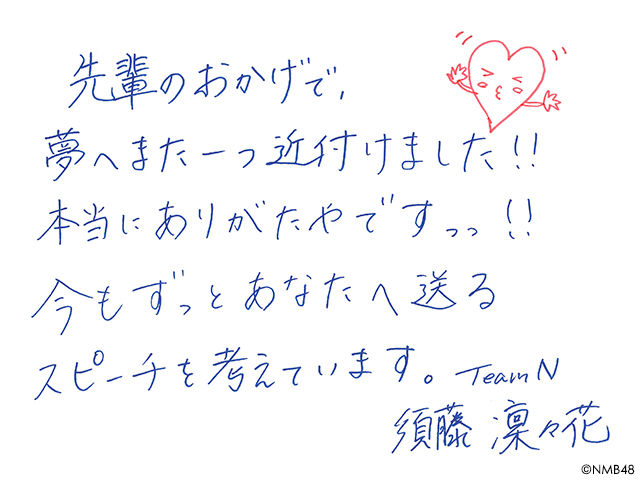 先輩のおかげで、
夢へまた一つ近付けました!!
本当にありがたやですっっ!!
今もずっとあなたへ送る
スピーチを考えています。TeamN
須藤 凜々花
©NMB48